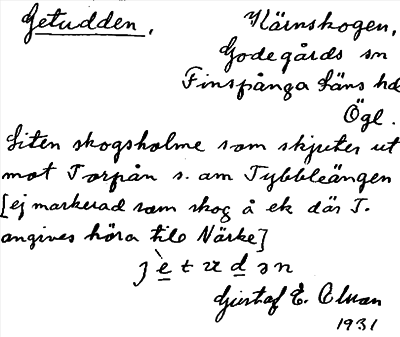 Getudden. Kärnskogen,
Godegårds sn
Finspånga läns hd
Ögl.
Liten skogsholme som skjuter ut
mot Torpån s. om Tybbleängen
[ej markerad som skog å ek där T.
angives höra till Närke]
je̲tud̲ən
Gustaf E.
1931